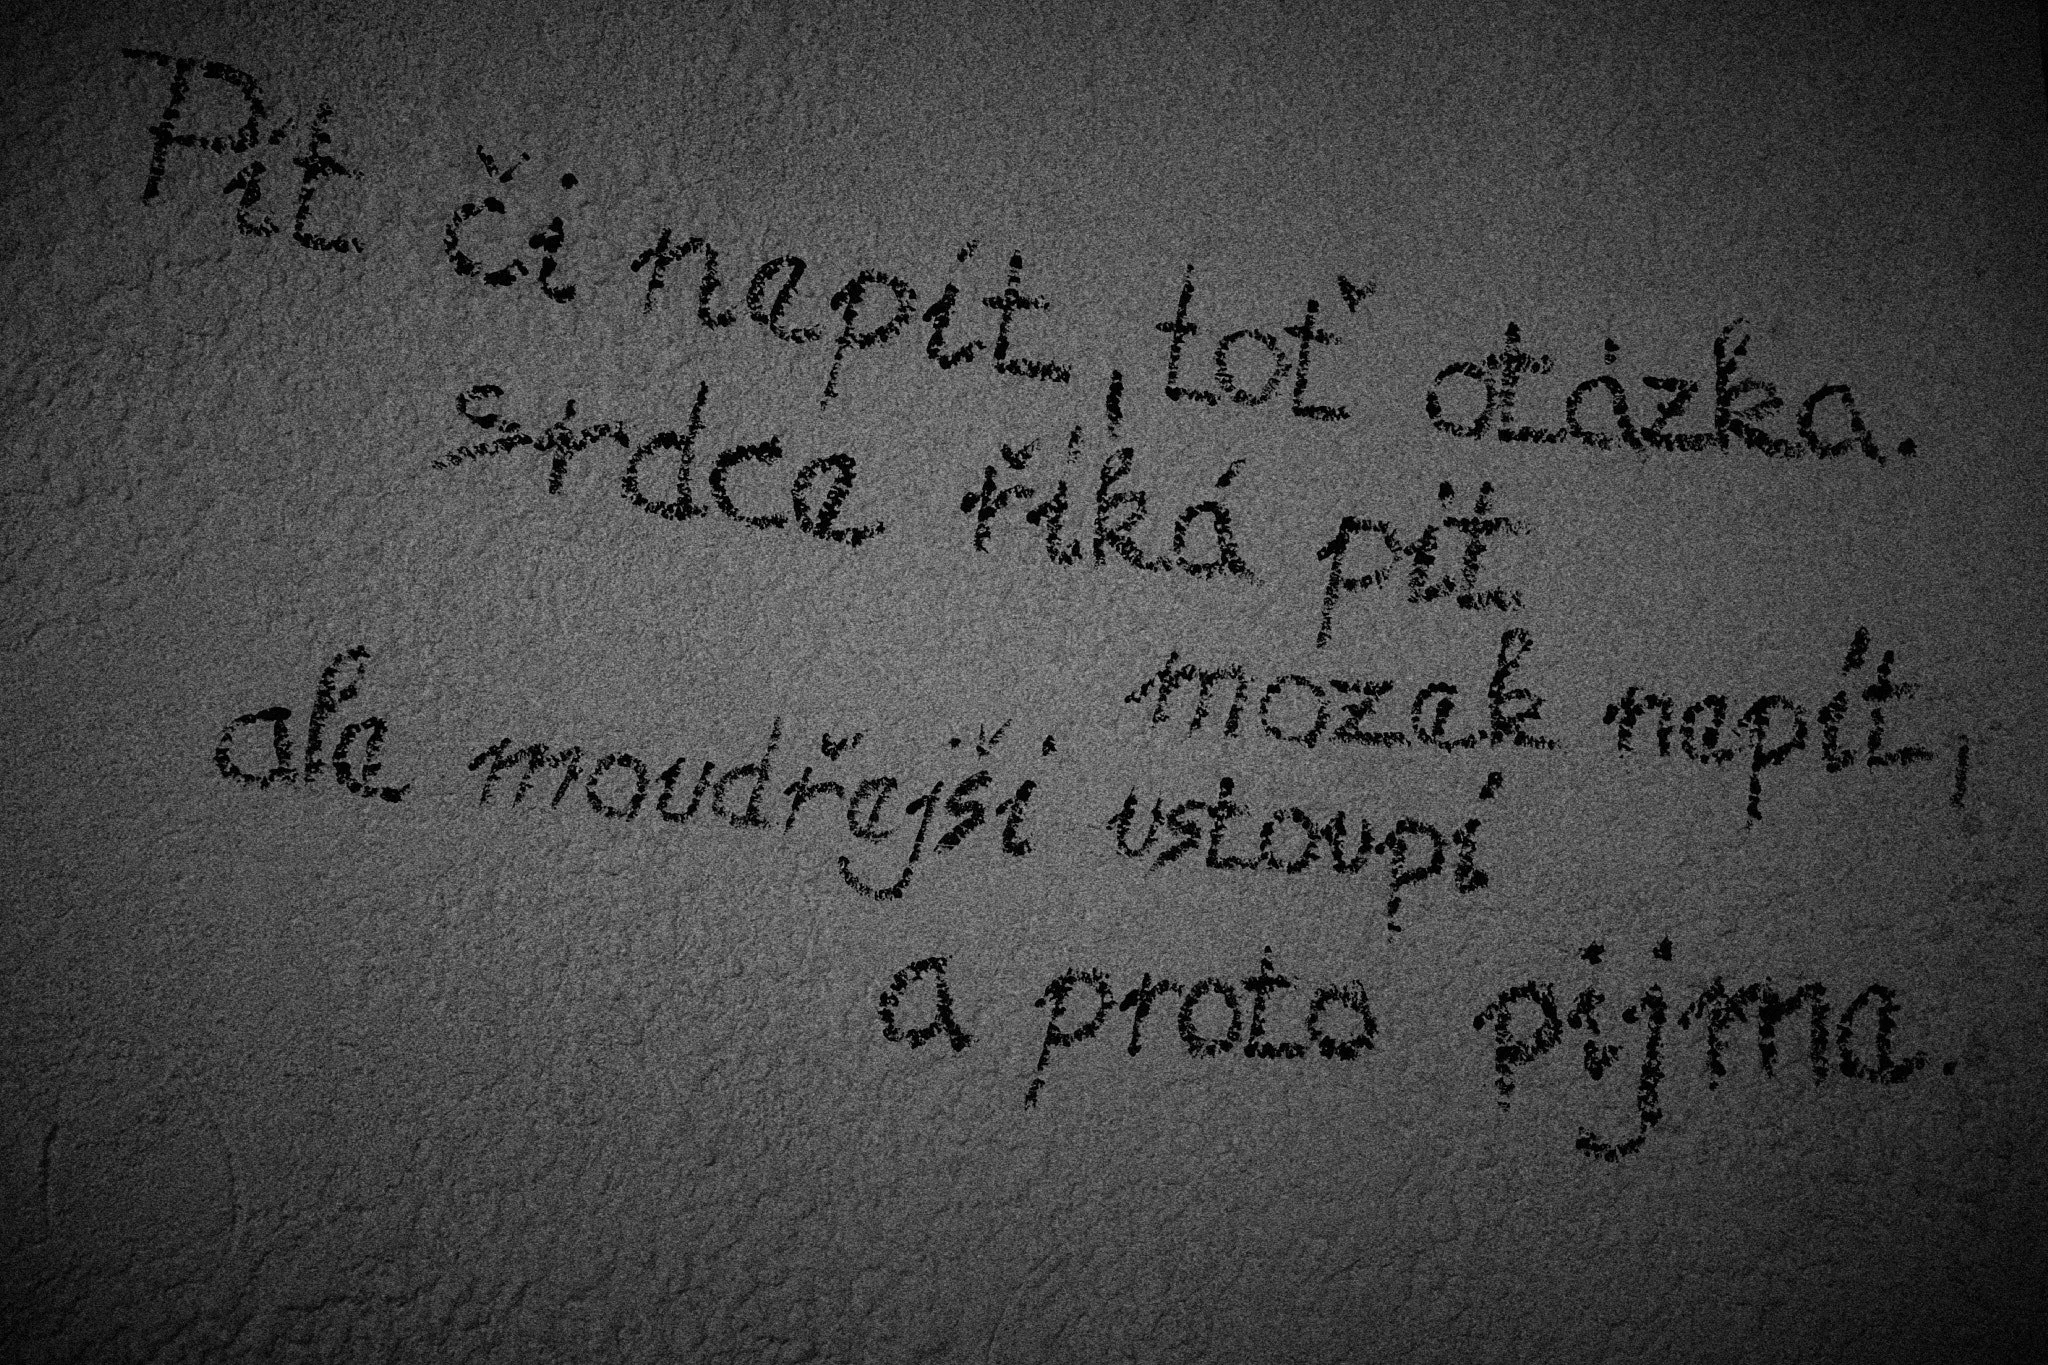 Pít či nepít, toť otázka.
Srdce říká pít
mozek nepít,
ale moudřejší ustoupí
a proto pijme.